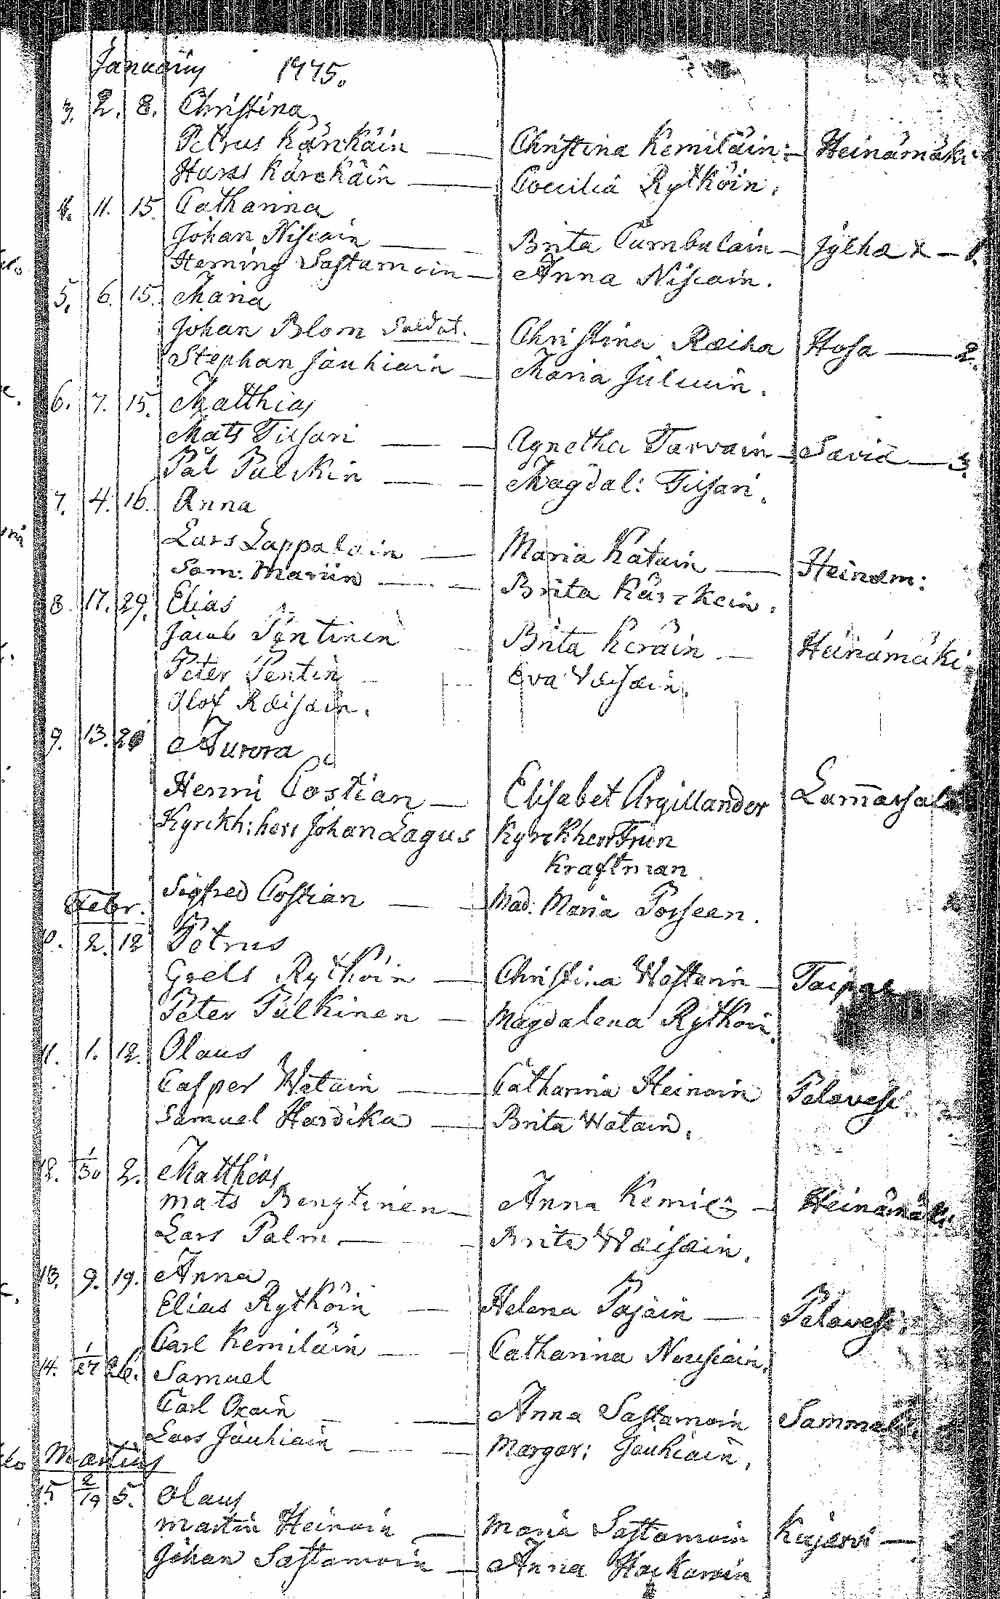 Januarius 1775.
3. 2. 8. Christina
Petrus Kärkäin — Christina Kemiläin: — Heinämäki
Hans Käreckäin — Coecilia Rytköin.
4. 11. 15. Catharina
Johan Niscain — Brita Tumbulain — Jylhæ x — 1.
Heming Sastamoin — Anna Niscain.
5. 6. 15. Maria
Johan Blom Soldat. — Christina Ræiha Hosa — 2.
Stephan Jauhiain — Maria Julcuin.
6. 7. 15. Matthias
Mats Tissari — Agnetha Tarvain — Savia — 3.
Pål Pulckin — Magdal: Tissari.
7. 4. 16. Anna
Lars Lappalain — Maria Katain — Heinæm:
Sam: Mariin — Brita Kärckein.
8. 17. 29. Elias
Jacob Pöntinen Brita Keräin — Heinämäki
Peter Pentin — Eva Væisæin.
Olof Ræisæin.
9. 13. 20 Aurora
Henric Costian — Elisabet Argillander Lammasalo
Kyrckh: herr Johan Lagus Kyrckherr Frun
Kraftman.
Sigfred Costian — Mad: Maria Posseen.
Febr.
10. 2. 12 Petrus
Grels Rytköin — Christina Westerin — Taipale
Peter Pulkinen — Magdalena Rytköin.
11. 1. 12. Olaus
Casper Watain — Catharina Heinoin Pelavesi
Samuel Hardika — Brita Watain.
12. 1/30 2. Matthias
Mats Bengtinen — Anna Kemil: — Heinämäki
Lars Palm — Brita Wæisæin.
13. 9. 19. Anna
Elias Rytköin — Helena Pajain — Pelavesi.
Carl Kemiläin — Catharina Nousiain.
14. 1/27 26. Samuel
Carl Ocain — Anna Sastamoin Sammal:
Lars Jauhiain — Margar: Jauhiain.
Martius
15 2/19 5. Olaus
Martin Heinoin — Maria Sastamoin Kojärvi —
Johan Sastamoin — Anna Hackarain